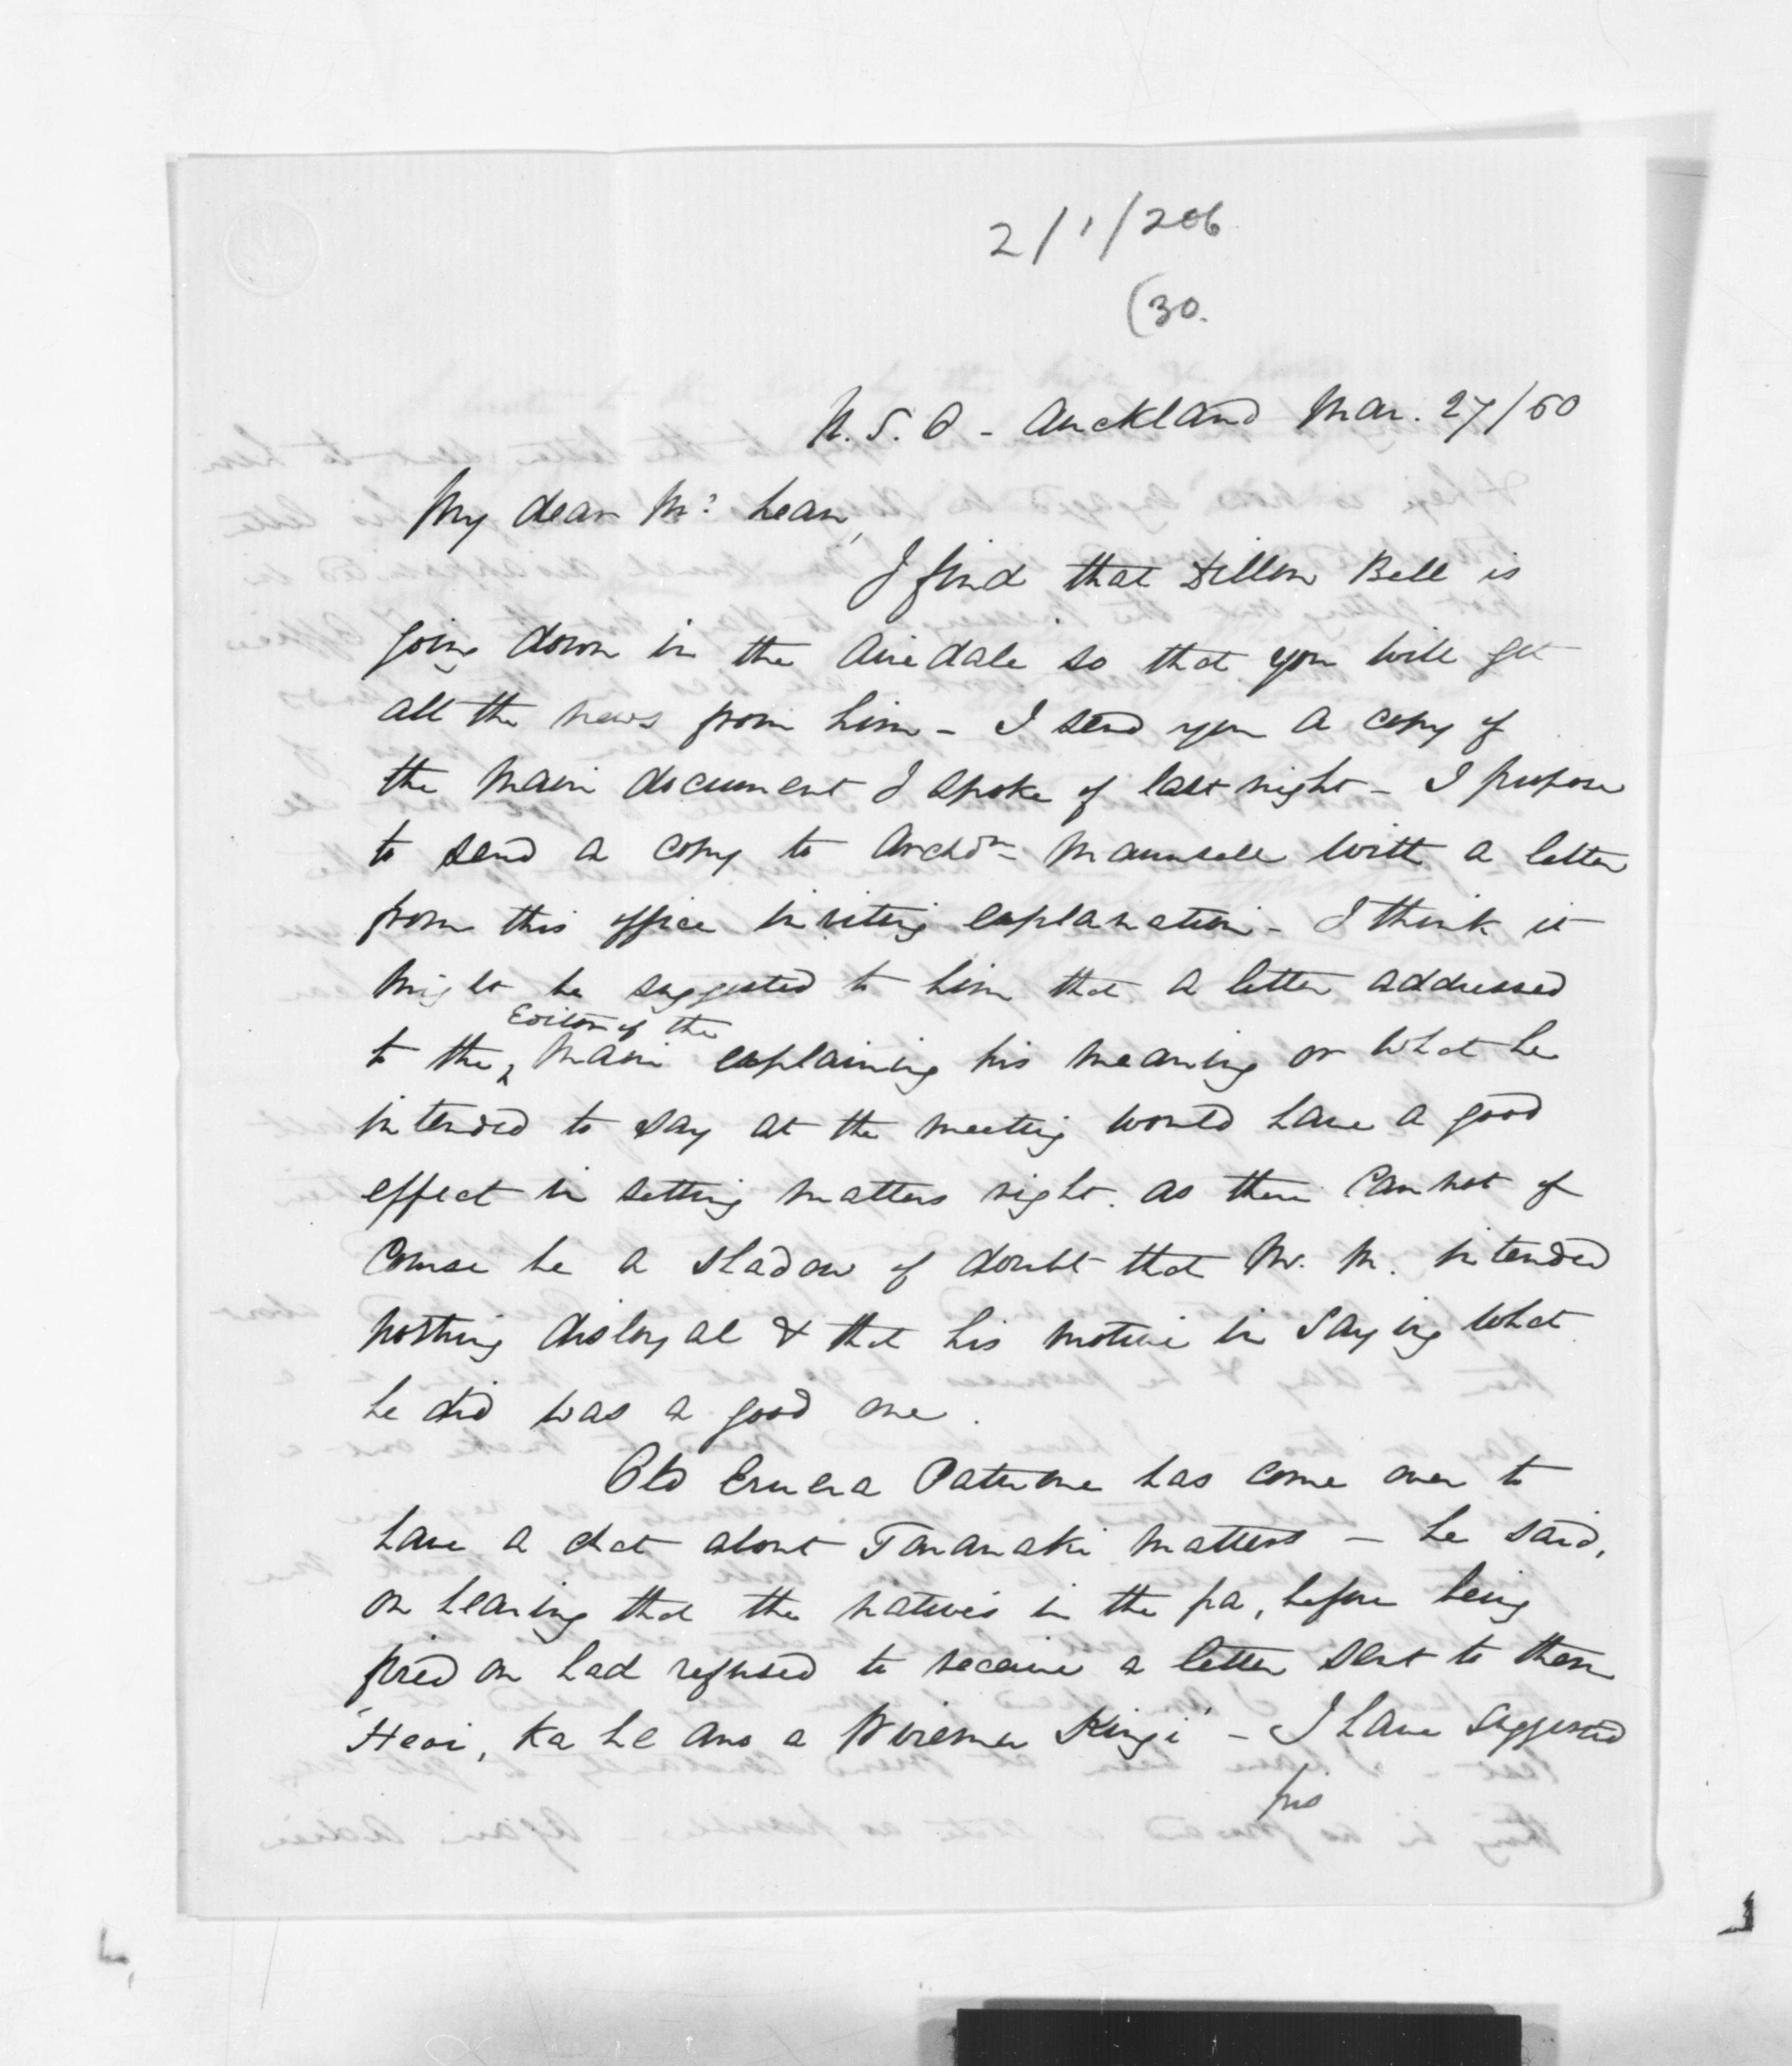 2/1/206
(30.
N. S. O - Auckland Mar. 27/60
My dear Mc. Lean,
I find that Dillon Bell is
going down in the Airedale so that you will get
all the news from him - I send you a copy of
the Maori document I spoke of last night - I propose
to send a copy to Archdn. Maunsell with a letter
from this office inviting explanation - I think it
might be suggested to him that a letter addressed
Editor of the
to the Maori explaining his meaning or what he
intended to say at the meeting would have a good
effect in setting matters right. as there cannot of
course be a shadow of doubt that Mr. M. intended
nothing disloyal & that his motive in saying what
he did was a good one.
Old Eruera Patuone has come over to
have a chat about Taranaki matters - he said,
on hearing that the natives in the pa, before being
fired on had refused to receive a letter sent to them
'Heoi, ka he ano a Wiremu Kingi' - I have suggested
his